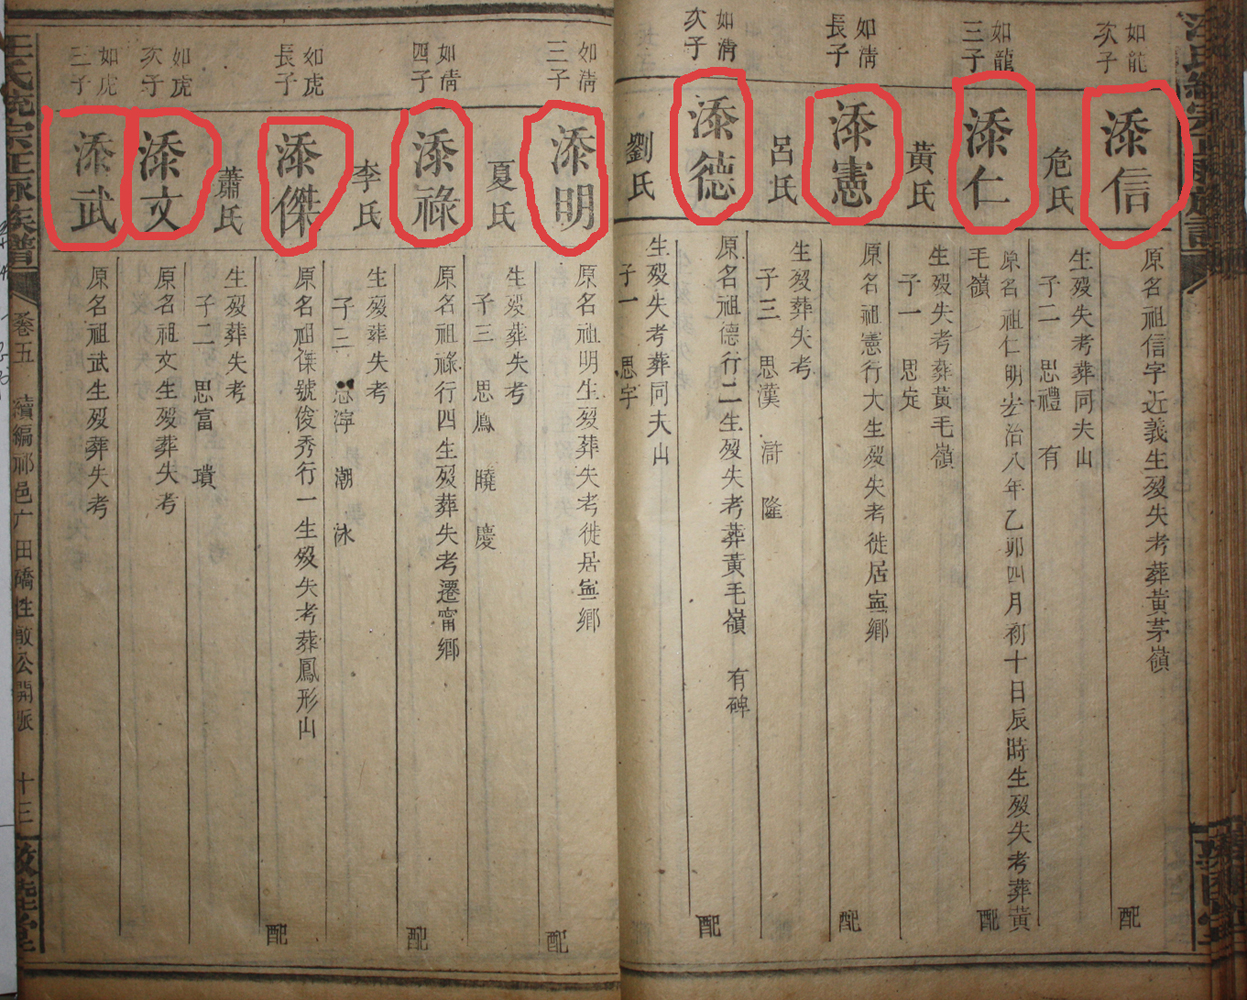 如龍
次子
添信
原名祖信字近義生歿失考葬黃茅嶺
配
危氏
生歿失考葬同夫山
子二 思禮 有
如龍
三子
添仁
原名祖仁明宏治八年乙卯四月初十日辰時生歿失考葬黃
毛嶺
配
黃氏
生歿失考葬黃毛嶺
子一 思定
如淸
長子
添憲
原名祖憲行大生歿失考徙居寧鄉
配
呂氏
生歿葬失考
子三 思漢 滸 隆
如淸
次子
添德
原名祖德行二生歿失考葬黃毛嶺 有碑
配
劉氏
生歿失考葬同夫山
子一 思宇
如淸
三子
添明
原名祖明生歿葬失考徙居寧鄉
配
夏氏
生歿葬失考
子三 思鳳 曉 慶
如倩
四子
添祿
原名祖祿行四生歿葬失考遷甯鄉
配
李氏
生歿葬失考
子三 思渟 潮 泳
如虎
長子
添傑
原名祖傑號俊秀行一生歿失考葬鳳形山
配
蕭氏
生歿葬失考
子二 思富 璝
如虎
次子
添文
原名祖文生歿葬失考
如虎
三子
添武
原名祖武生歿葬失考
卷五 續編邵邑广田磽性敵公開派 十三